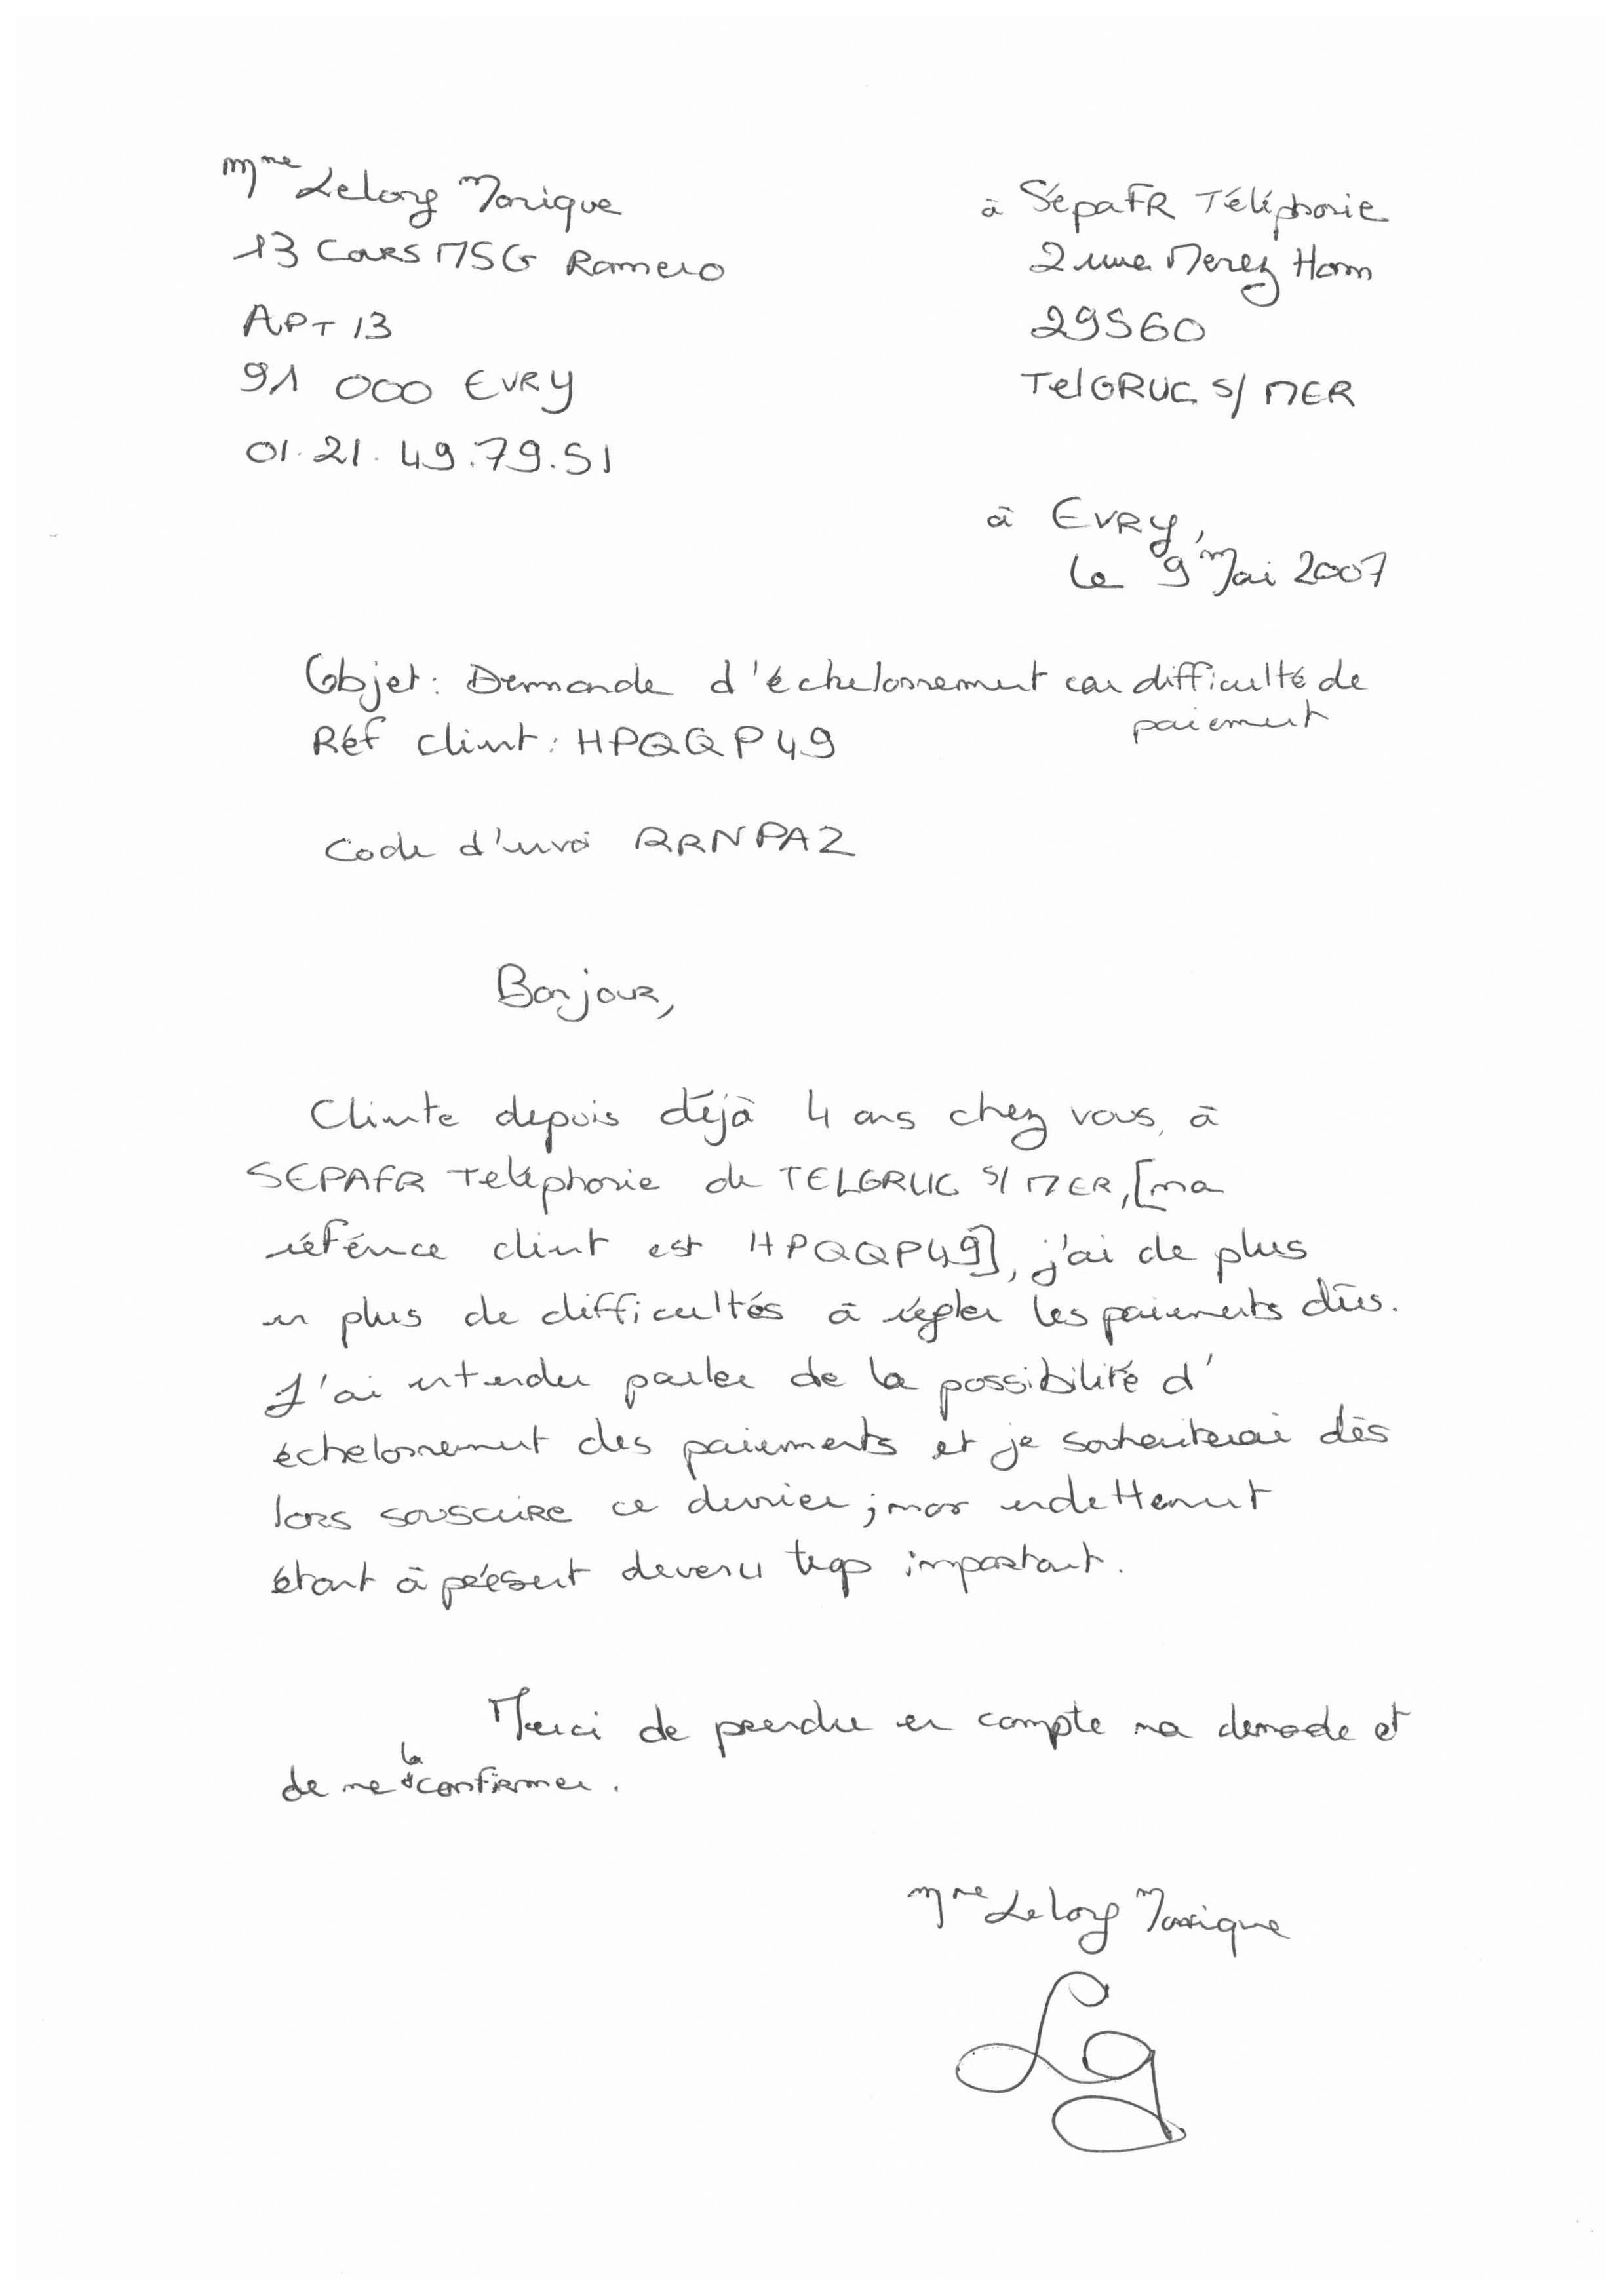 Mme Lelong Monique
13 Cours MSG Romero
APT 13
91 000 EVRY
01.21.49.79.51
à SépaFR Téléphonie
2 rue Merez Hom
29560
TelGRUC S/ MER
à EVRY,
le 9 Mai 2007
Objet : Demande d'échelonnement car difficulté de
paiement
Réf client : HPQQP49
Code d'envoi RRNPA2
Bonjour,
Cliente depuis déjà 4 ans chez vous, à
SEPAFR Téléphonie de TELGRUC S/ MER, [ma
référence client est HPQQP49], j'ai de plus
en plus de difficultés à régler les paiements dûs.
J'ai entendu parler de la possibilité d'
échelonnement des paiements et je souhaiterai dès
lors souscrire ce dernier ; mon endettement
étant à présent devenu trop important.
Merci de prendre en compte ma demande et
de me la confirmer.
Mme Lelong Monique
Lg